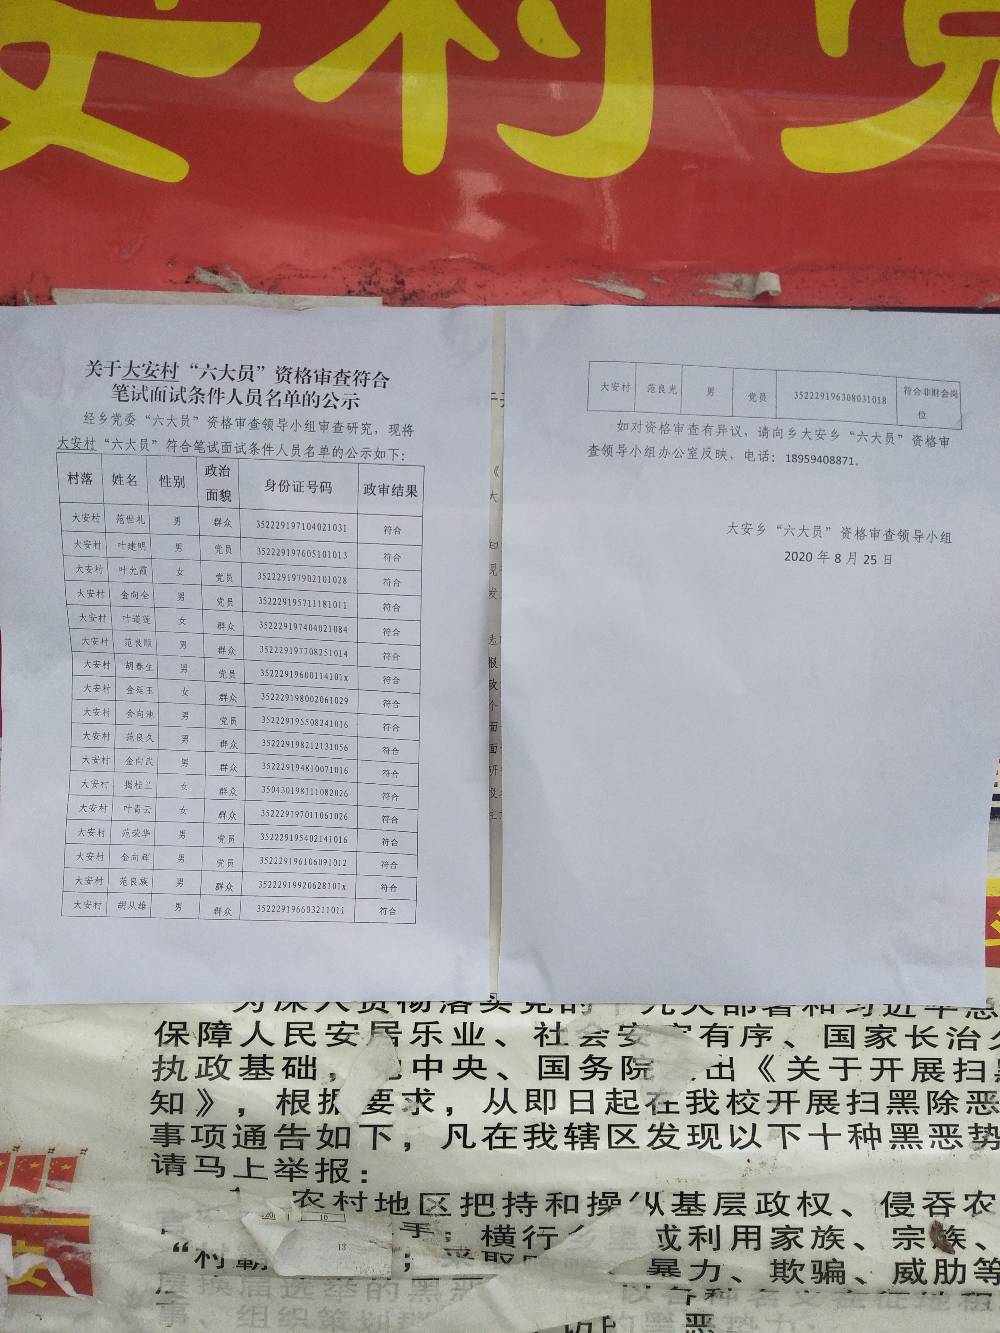 安村党
关于大安村“六大员”资格审查符合
笔试面试条件人员名单的公示
经乡党委“六大员”资格审查领导小组审查研究，现将
大安村“六大员”符合笔试面试条件人员名单的公示如下：
村落 姓名 性别 政治面貌 身份证号码 政审结果
大安村 范世礼 男 群众 352229197104021031 符合
大安村 叶建明 男 党员 352229197605101013 符合
大安村 叶允霞 女 党员 352229197902101028 符合
大安村 金向全 男 党员 352229195711181011 符合
大安村 叶道莲 女 群众 352229197404021084 符合
大安村 范良顺 男 群众 352229197708251014 符合
大安村 胡春生 男 党员 35222919600114101x 符合
大安村 金延玉 女 群众 352229198002061029 符合
大安村 金向 男 党员 352229195508241016 符合
大安村 范良久 男 群众 352229198212131056 符合
大安村 金向武 男 群众 352229194810071016 符合
大安村 桂兰 女 群众 350430198111082026 符合
大安村 叶青云 女 群众 352229197011061026 符合
大安村 范荣华 男 党员 352229195402141016 符合
大安村 金向辉 男 党员 352229196106091012 符合
大安村 范良族 男 群众 35222919920628101x 符合
大安村 胡从雄 男 群众 352229196603211011 符合
大安村 范良光 男 党员 352229196308031018 符合非财会岗位
如对资格审查有异议，请向乡大安乡“六大员”资格审
查领导小组办公室反映，电话：18959408871。
大安乡“六大员”资格审查领导小组
2020年8月25日
为深入贯彻落实党的十九大部署和习近平总
保障人民安居乐业、社会安定有序、国家长治久
执政基础，中央、国务院出《关于开展扫黑
知》，根据要求，从即日起在我校开展扫黑除恶
事项通告如下，凡在我辖区发现以下十种黑恶势
请马上举报：
农村地区把持和操纵基层政权、侵吞农
手，横行乡里或利用家族、宗族、
“村霸 暴力、欺骗、威胁等
层换届选举的黑恶 以各种名义在征地租
事、组织策划群 的黑恶势力